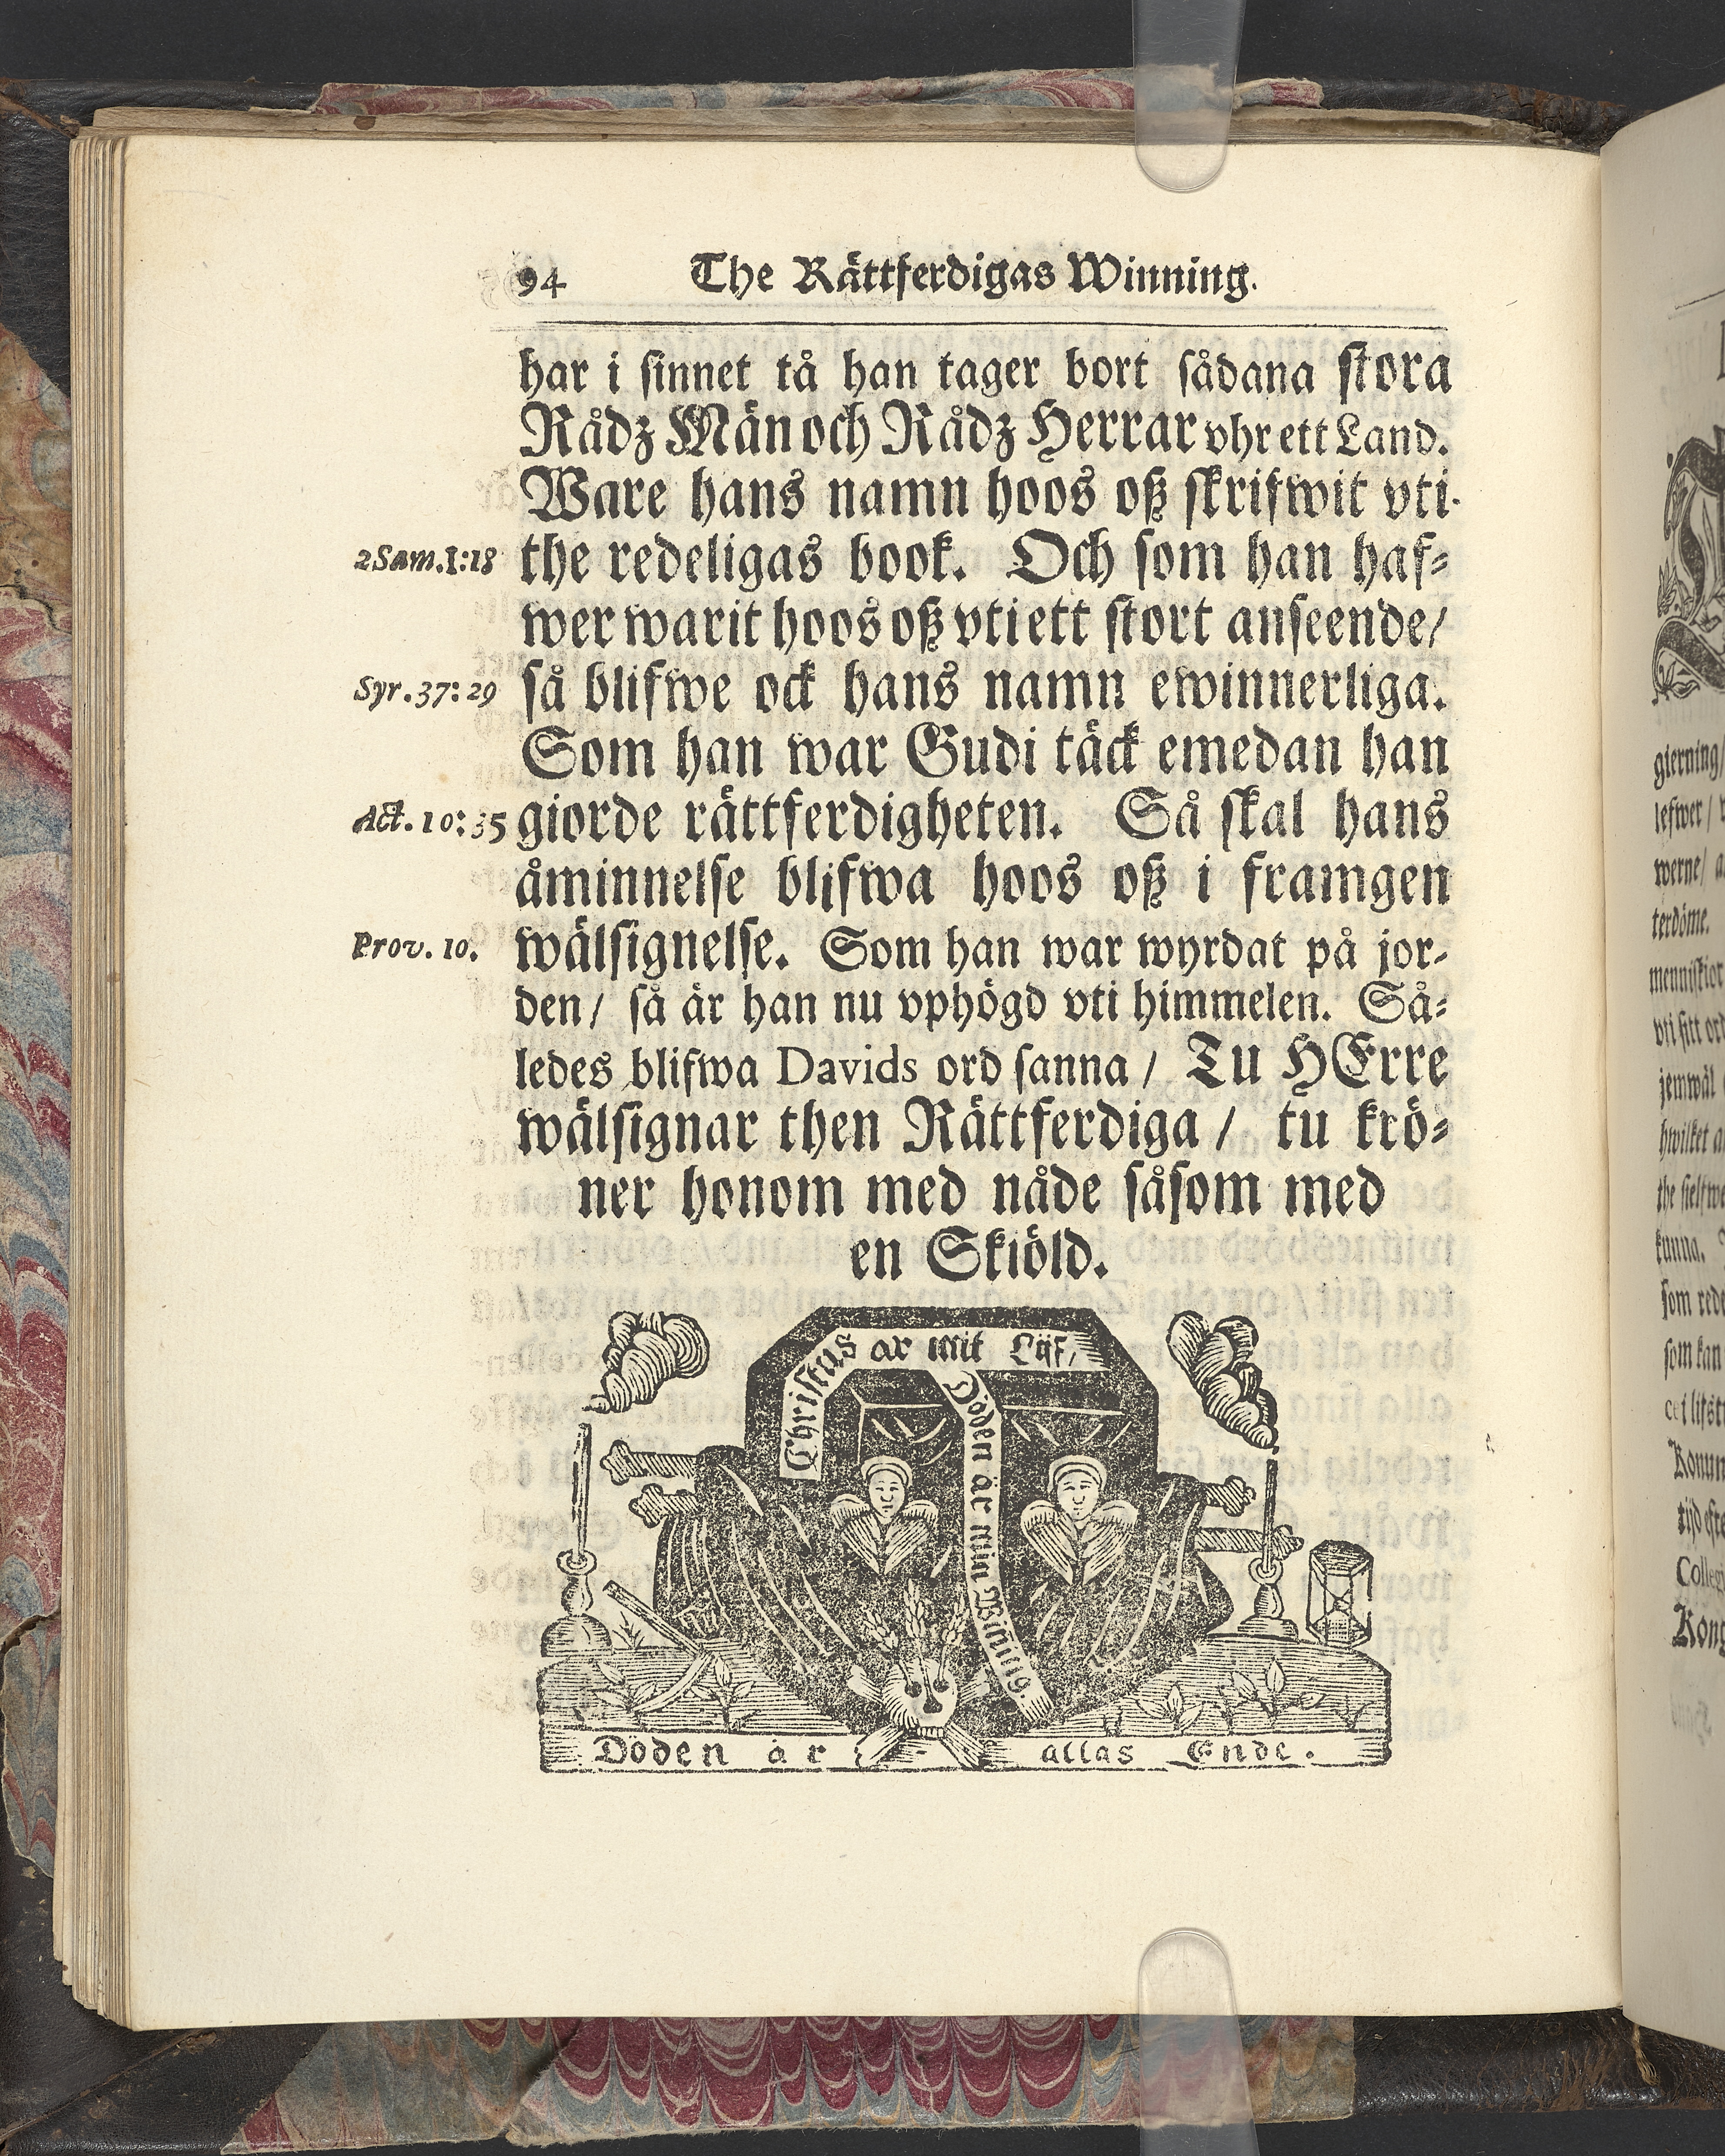 94 The Rättferdigas Winning.
har i sinnet tå han tager bort sådana stora
Rådz Män och Rådz Herrar vhr ett Land.
Ware hans namn hoos oß skrifwit vti
2 Sam. 1:18 the redeligas book. Och som han haf-
wer warit hoos oß vti ett stort anseende/
Syr. 37:29 så blifwe ock hans namn ewinnerliga.
Som han war Gudi täck emedan han
Act. 10:35 giorde rättferdigheten. Så skal hans
åminnelse blifwa hoos oß i framgen
Prov. 10. wälsignelse. Som han war wyrdat på jor-
den/ så är han nu vphögd vti himmelen. Så-
ledes blifwa Davids ord sanna/ Tu HErre
wälsignar then Rättferdiga/ tu krö-
ner honom med nåde såsom med
en Skiöld.
Christus är mit Lijf,
Döden är min Winnig.
Döden är allas Ende.
gierning/
lefwer/
werne/
terdöme.
menniskior
vti sitt ord
jemwäl
hwilket
the sielfwe
kunna.
som rede
som kan
Collegi